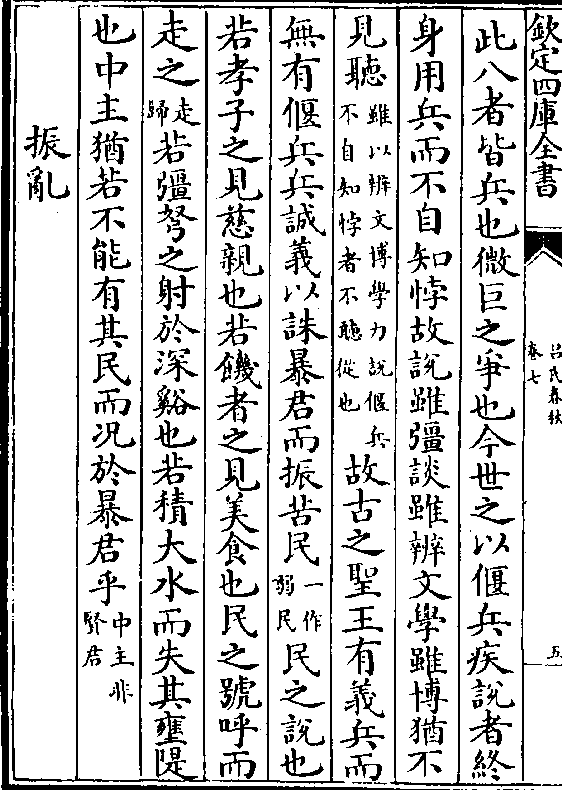 欽定四庫全書
呂氏春秋
卷七
五
此八者皆兵也微巨之爭也今世之以偃兵疾說者終
身用兵而不自知悖故說雖彊談雖辨文學雖博猶不
見聽雖以辨文博學力說偃兵不自知悖者不聽從也故古之聖王有義兵而
無有偃兵兵誠義以誅暴君而振苦民一作弱民民之說也
若孝子之見慈親也若饑者之見美食也民之號呼而
走之走歸若彊弩之射於深谿也若積大水而失其壅隄
也中主猶若不能有其民而况於暴君乎中主非賢君
振亂